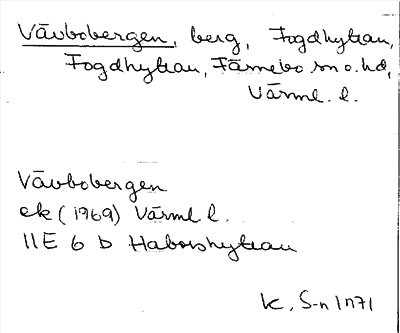 Vävbobergen, berg, Fogdhyttan,
Fogdhyttan, Färnebo sn o. hd,
Värml. l.
Vävbobergen
ek (1969) Värml l.
11E 6 b Haborshyttan
K. S-n 1971